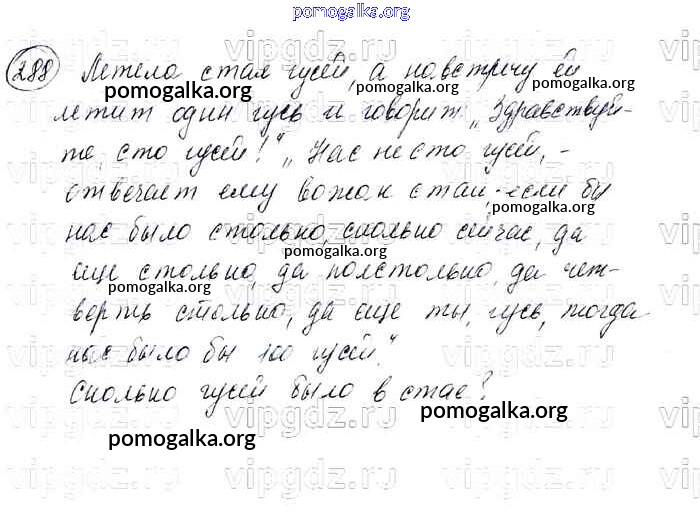 pomogalka.org
288 Летела стая гусей, а навстречу ей
pomogalka.org pomogalka.org
летит один гусь и говорит „Здравствуй-
те, сто гусей!" „Нас не сто гусей, -
отвечает ему вожак стаи, - если бы
pomogalka.org
нас было столько, сколько сейчас, да
pomogalka.org
еще столько, да полстолько, да чет-
верть столько, да еще ты, гусь, тогда
нас было бы 100 гусей."
Сколько гусей было в стае?
pomogalka.org
pomogalka.org
vipgdz.ru vipgdz.ru vipgdz.ru